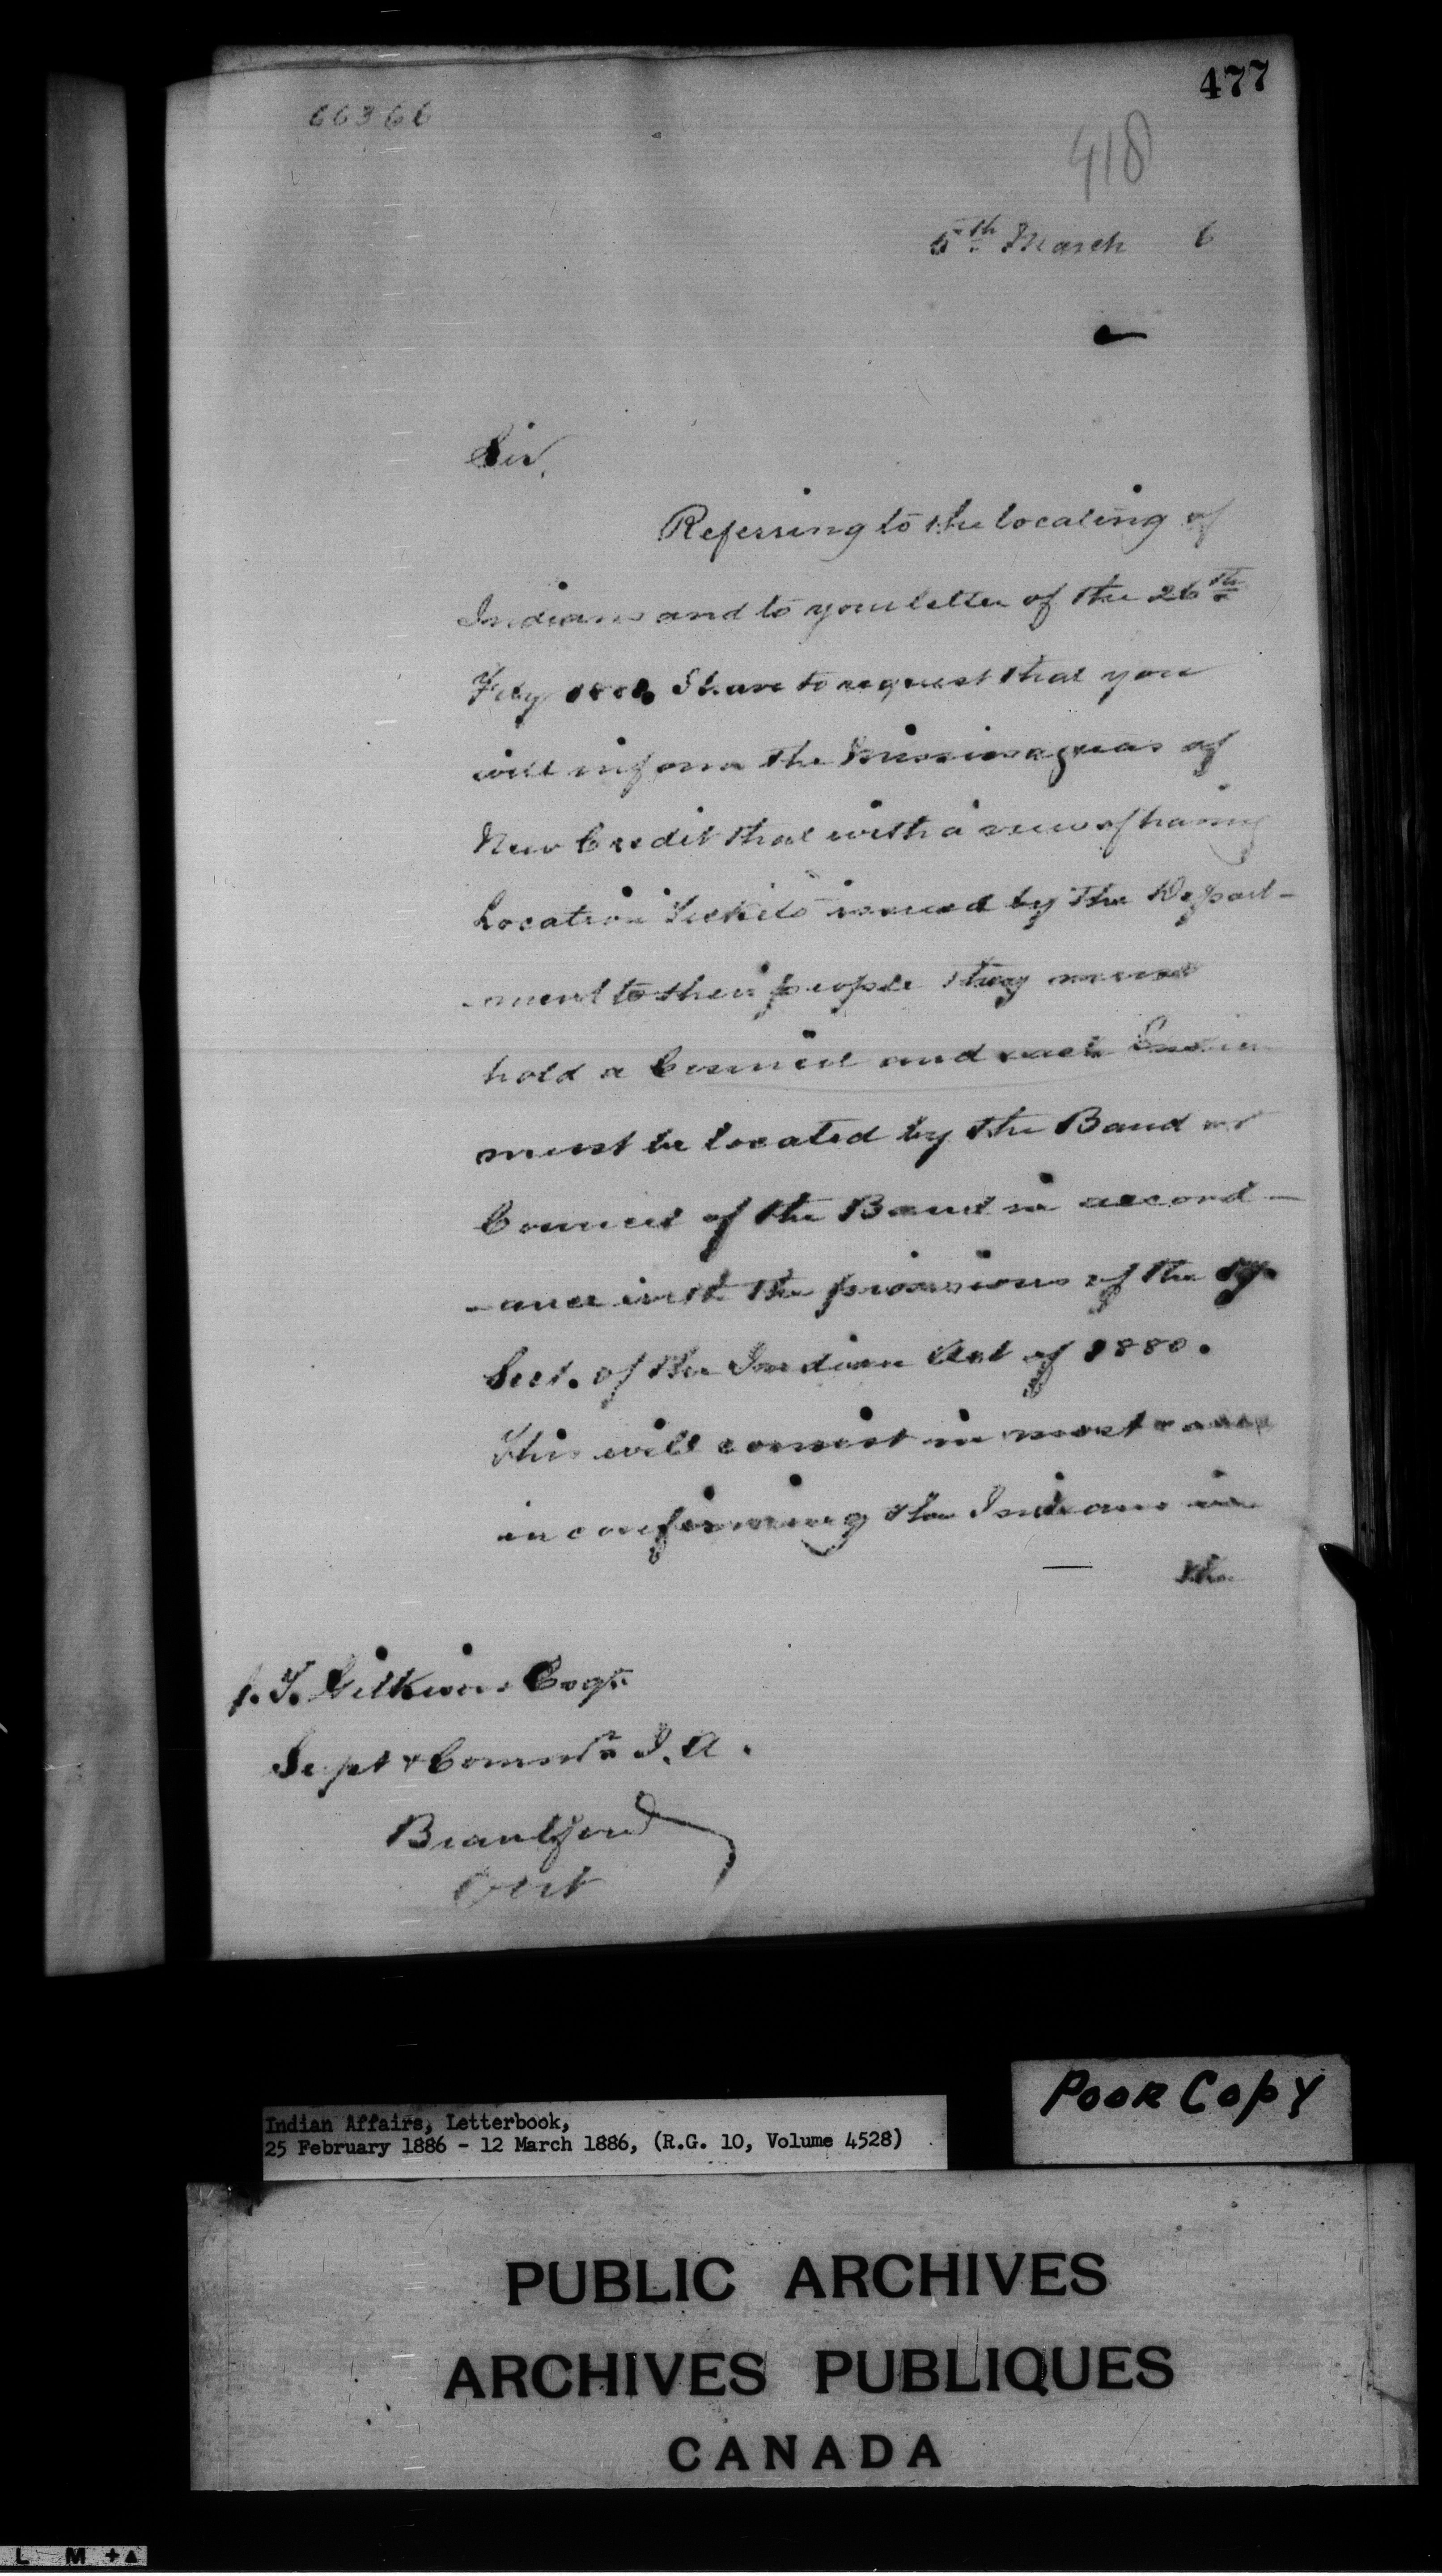 477
66366
418
5th March 6
Sir,
Referring to the locating of
Indians and to your letter of the 26th
Feby I have to request that you
will inform the Missisaguas of
New Credit that with a view of having
Location Tickets issued by the Depart-
-ment to their people they must
hold a Council and each Indian
must be located by the Band or
Council of the Band in accord-
-ance with the provisions of the
Sect. of the Indian Act of 1880.
This will consist in most cases
in confirming the Indians in
the
J. T. Gilkison Esqr.
Supt & Commr. I. A.
Brantford
Ont
POOR COPY
Indian Affairs, Letterbook,
25 February 1886 - 12 March 1886, (R.G. 10, Volume 4528)
PUBLIC ARCHIVES
ARCHIVES PUBLIQUES
CANADA
L M +▲